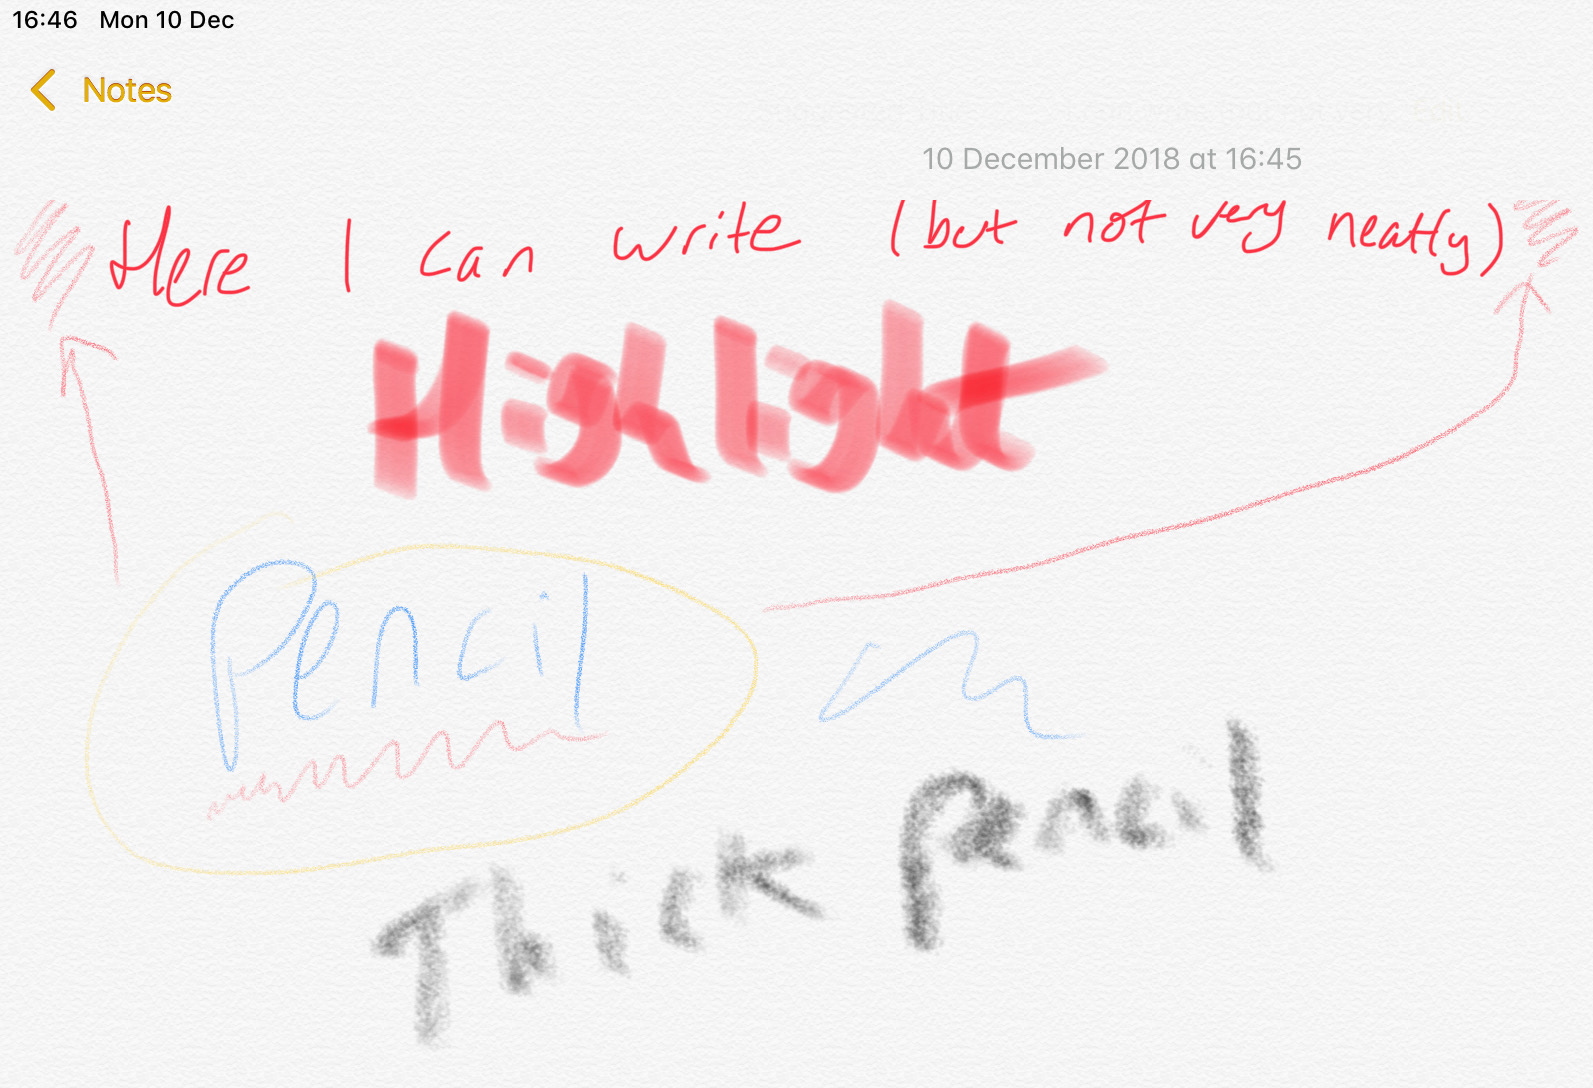 16:46 Mon 10 Dec
Notes
10 December 2018 at 16:45
Here I can write (but not very neatly)
Highlight
Pencil
Thick Pencil